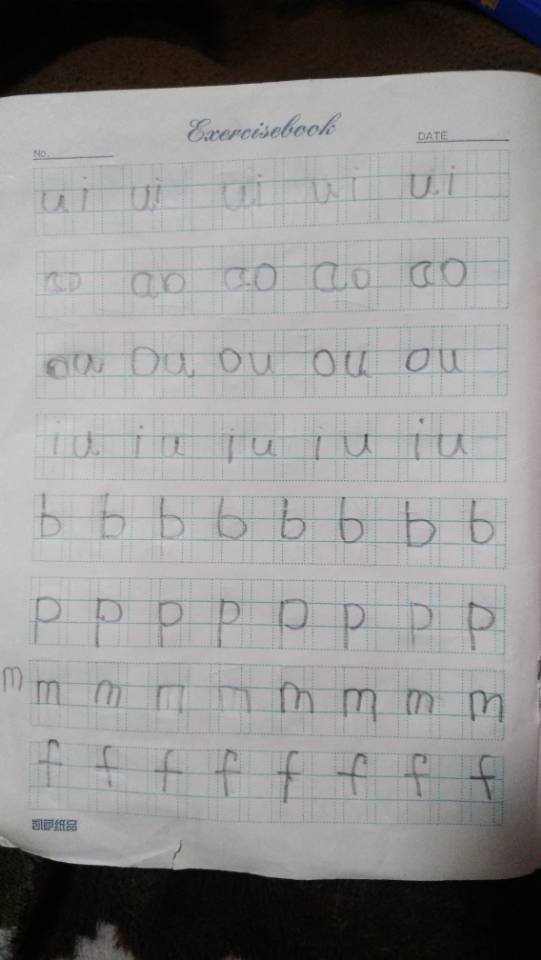 Exercisebook
No. DATE
ui ui ui ui ui
ao ao ao ao ao
ou ou ou ou ou
iu iu iu iu iu
b b b b b b b b
p p p p p p p p
m m m m m m m m m
f f f f f f f f